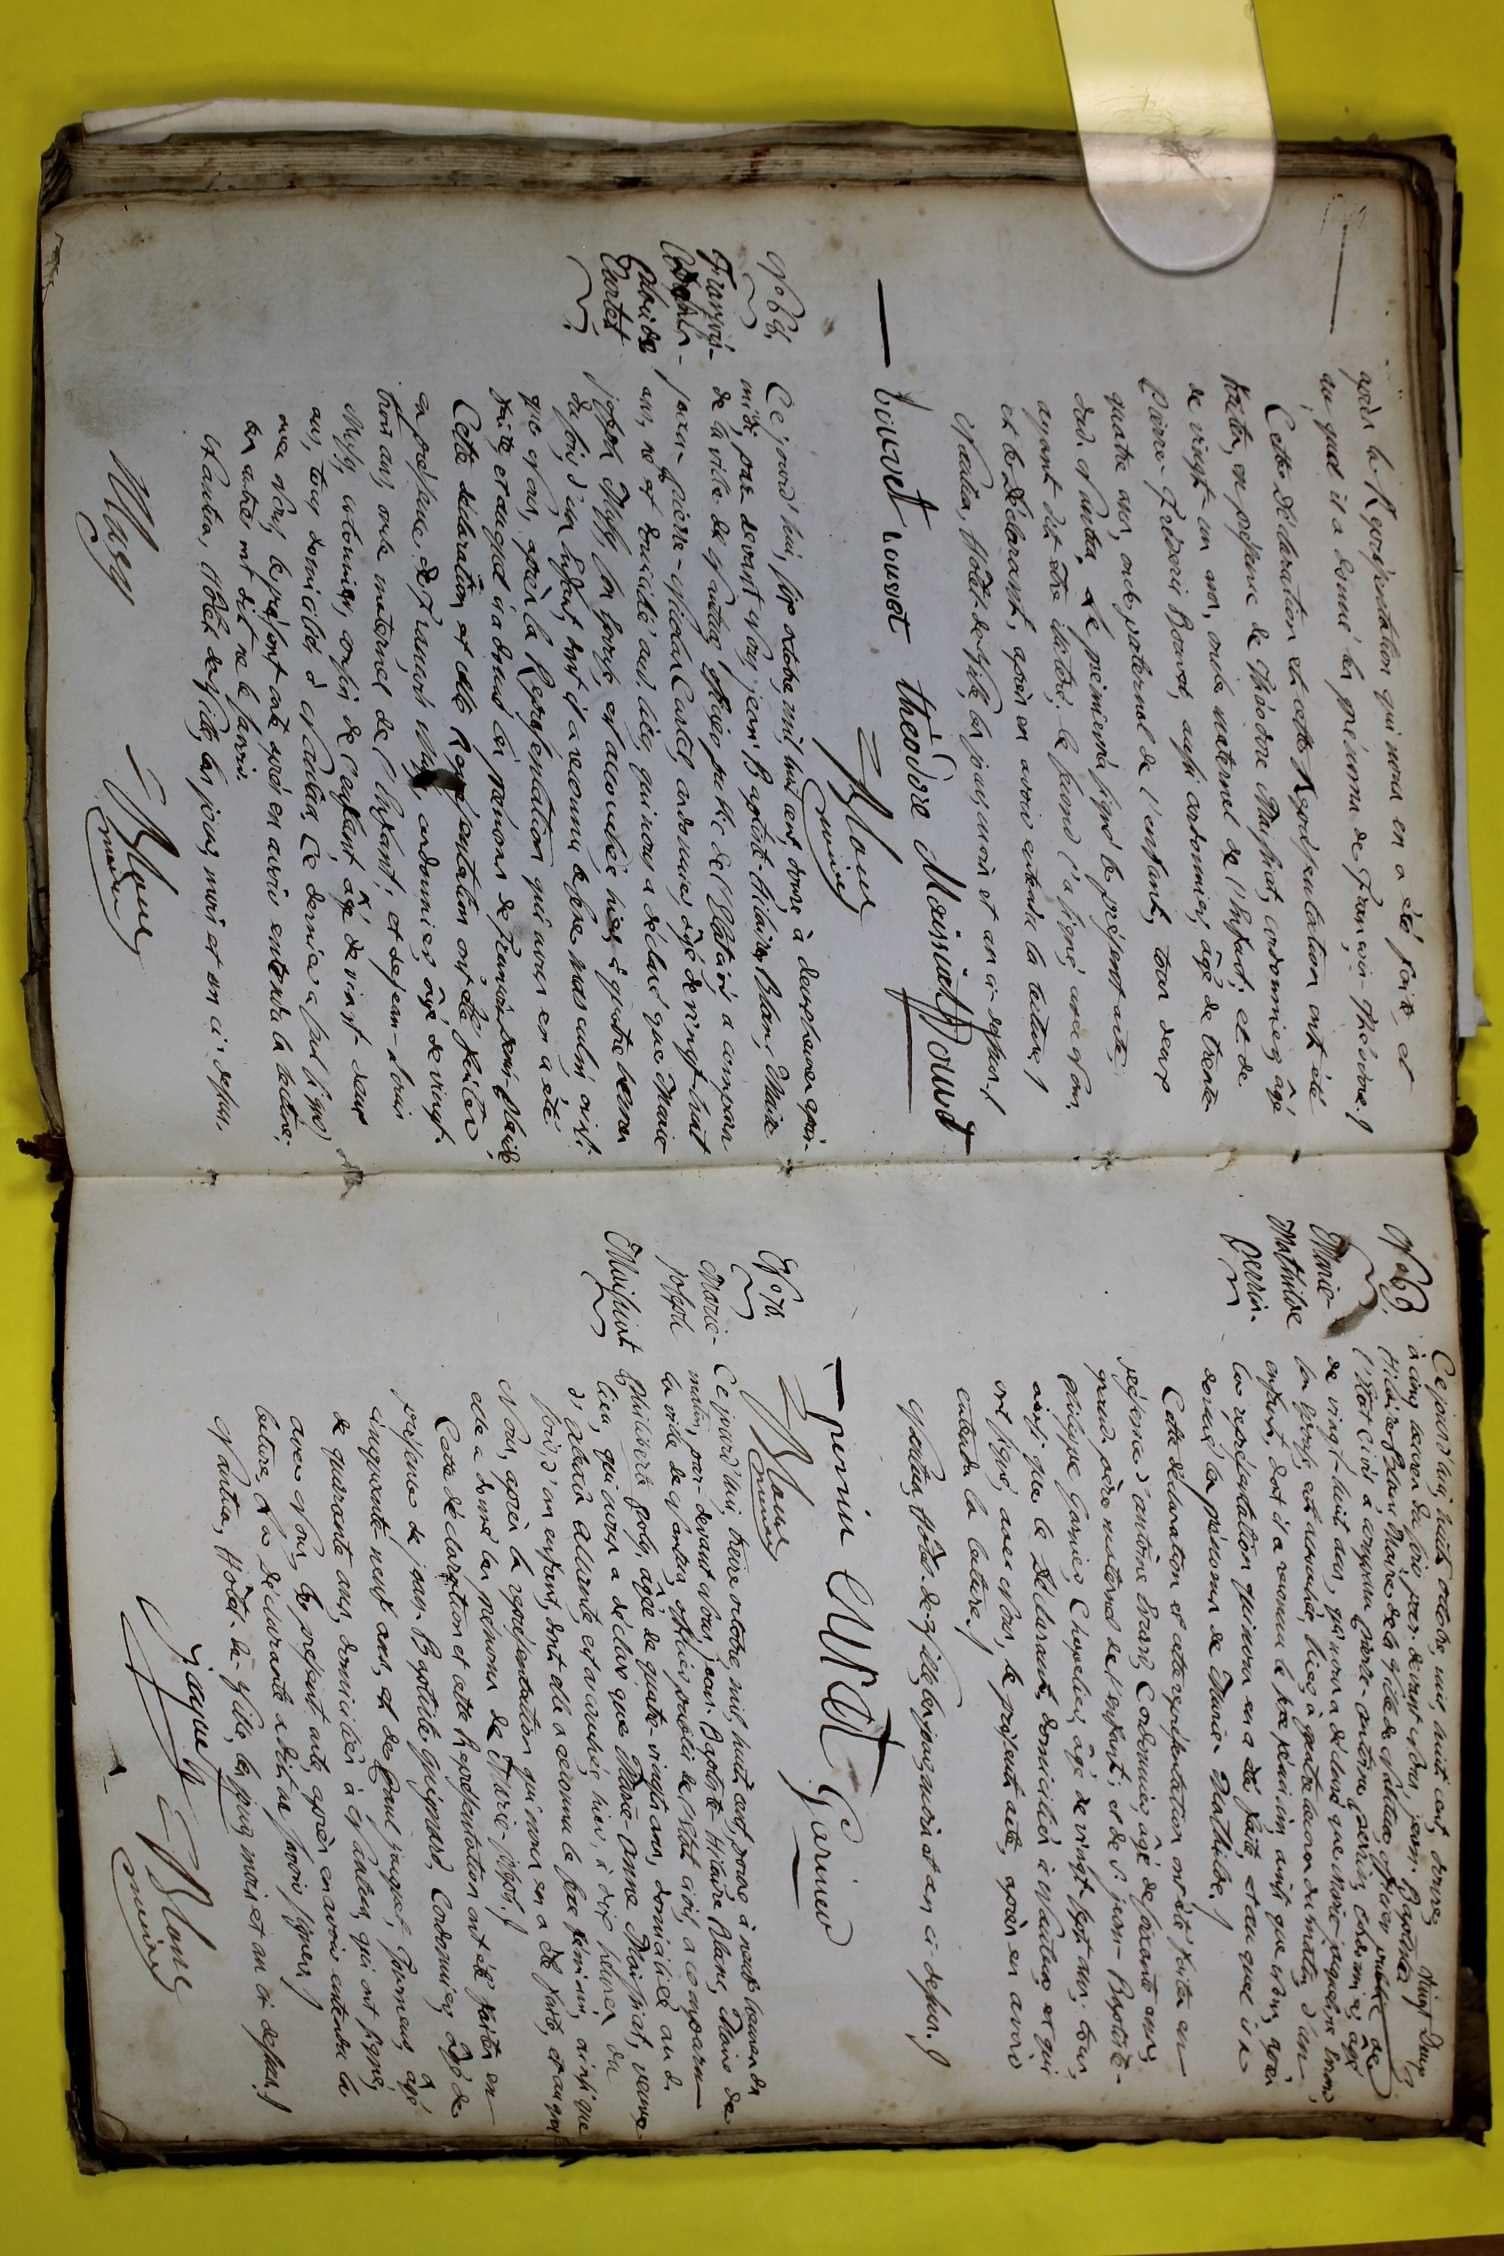 après la Représentation qui nous en a été faite, et
au quel il a donné les prénoms de François-Théodore./
Cette Déclaration et cette Représentation ont été
faites, en présence de Théodore Maissiat, cordonnier, âgé
de vingt-un ans, oncle maternel de l'Enfant; et de
Pierre-Frédéric Bouvet, aussi cordonnier, âgé de trente
quatre ans, oncle paternel de l'enfant, tous deux
dom. à Nantua. Le premier a signé le présent acte
ayant dit être illettré; le second l'a signé avec Nous,
et le Déclarant, après en avoir entendu la lecture./
Nantua, Hôtel-de-Ville, les jour, mois et an ci-dessus./
Blanc
maire
bouvet Louvet théodore Maissiat Bouvet
N° 68.
François-
Gabriel
Cartet
Ce jourd'hui, six octobre, mil huit cent douze à deux heures après-
midi, par devant Nous jean-Baptiste-Hilaire Blanc, Maire
de la ville de Nantua, officier public de l'Etat civil, a comparu
pierre-Nicolas Cartet, cordonnier, âgé de vingt-huit
ans, né et domicilié aud. lieu, qui nous a déclaré que Marie
joseph Mugy, son épouse, est accouchée, hier, à quatre heures
du soir, d'un Enfant, dont il a reconnu le sexe masculin, ainsi
que Nous, après la Représentation qui nous en a été
faite, et auquel il a donné les prénoms de
Cette déclaration et cette Représentation ont été faites
en présence de François Mugy, cordonnier, âgé de vingt-
trois ans, oncle maternel de l'Enfant; et de jean-Louis
Mugy, cousin de l'enfant, âgé de vingt-deux
ans, tous domiciliés à Nantua. Ce dernier a seul signé
avec Nous, le présent acte, après en avoir entendu la lecture;
les autres ont dit ne le savoir.
Nantua, Hôtel de Ville, les jour, mois et an ci-dessus.
Mugy
Blanc
maire
Vingt-Deux
N° 69.
Marie-
Mathilde
Perrin.
Ce jourd'hui, huit octobre, mil huit cent douze,
à cinq heures du soir, par-devant Nous, jean-Baptiste
Hilaire Blanc, Maire de la Ville de Nantua, officier public de
l'Etat civil, a comparu Pierre-antoine Perrin, âgé
de vingt-huit ans, qui nous a déclaré que Marie
son épouse, est accouchée, hier, à quatre heures du matin, d'un
enfant, dont il a reconnu le sexe féminin, ainsi que Nous, après
la représentation qui nous en a été faite, et au quel il a
donné les prénoms de Marie Mathilde./
Cette déclaration et cette représentation ont été faites en
présence d'antoine Evrard, Cordonnier, âgé de soixante ans,
grand-père maternel de l'enfant; et de S. jean-Baptiste-
philippe Garnier, Chapelier, âgé de vingt-sept ans; tous,
ainsi que le Déclarant, domiciliés à Nantua, et qui
ont signé, avec Nous, le présent acte, après en avoir
entendu la lecture./
Nantua, Hôtel-de-Ville, les jour, mois et an ci-dessus./
perrin Evrat Garnier
Blanc
maire
N° 70.
Marie-
joseph
Maissiat
Ce jourd'hui, treize octobre, mil huit cent douze, à neuf heures du
matin, par-devant Nous, jean-Baptiste-Hilaire Blanc, Maire de
la ville de Nantua, officier public de l'Etat civil, a comparu
philiberte Joly, âgée de quatre-vingts ans, domiciliée au d.
lieu, qui nous a déclaré que Marie-Anne Maissiat, veuve
d' Allante, est accouchée, hier, à dix heures du
soir, d'un enfant, dont elle a reconnu le sexe féminin, ainsi que
Nous, après la représentation qui nous en a été faite, et auquel
elle a donné les prénoms de Marie-joseph./
Cette déclaration et cette Représentation ont été faites en
présence de jean-Baptiste Guignard, Cordonnier, âgé de
cinquante-neuf ans, et de Jaquet, âgé
de quarante ans, domiciliés à Nantua, qui ont signé,
avec Nous, le présent acte, après en avoir entendu la
lecture. La Déclarante a dit ne savoir signer./
Nantua, Hôtel-de-Ville, les jour, mois et an ci-dessus./
jaquet
Blanc
maire